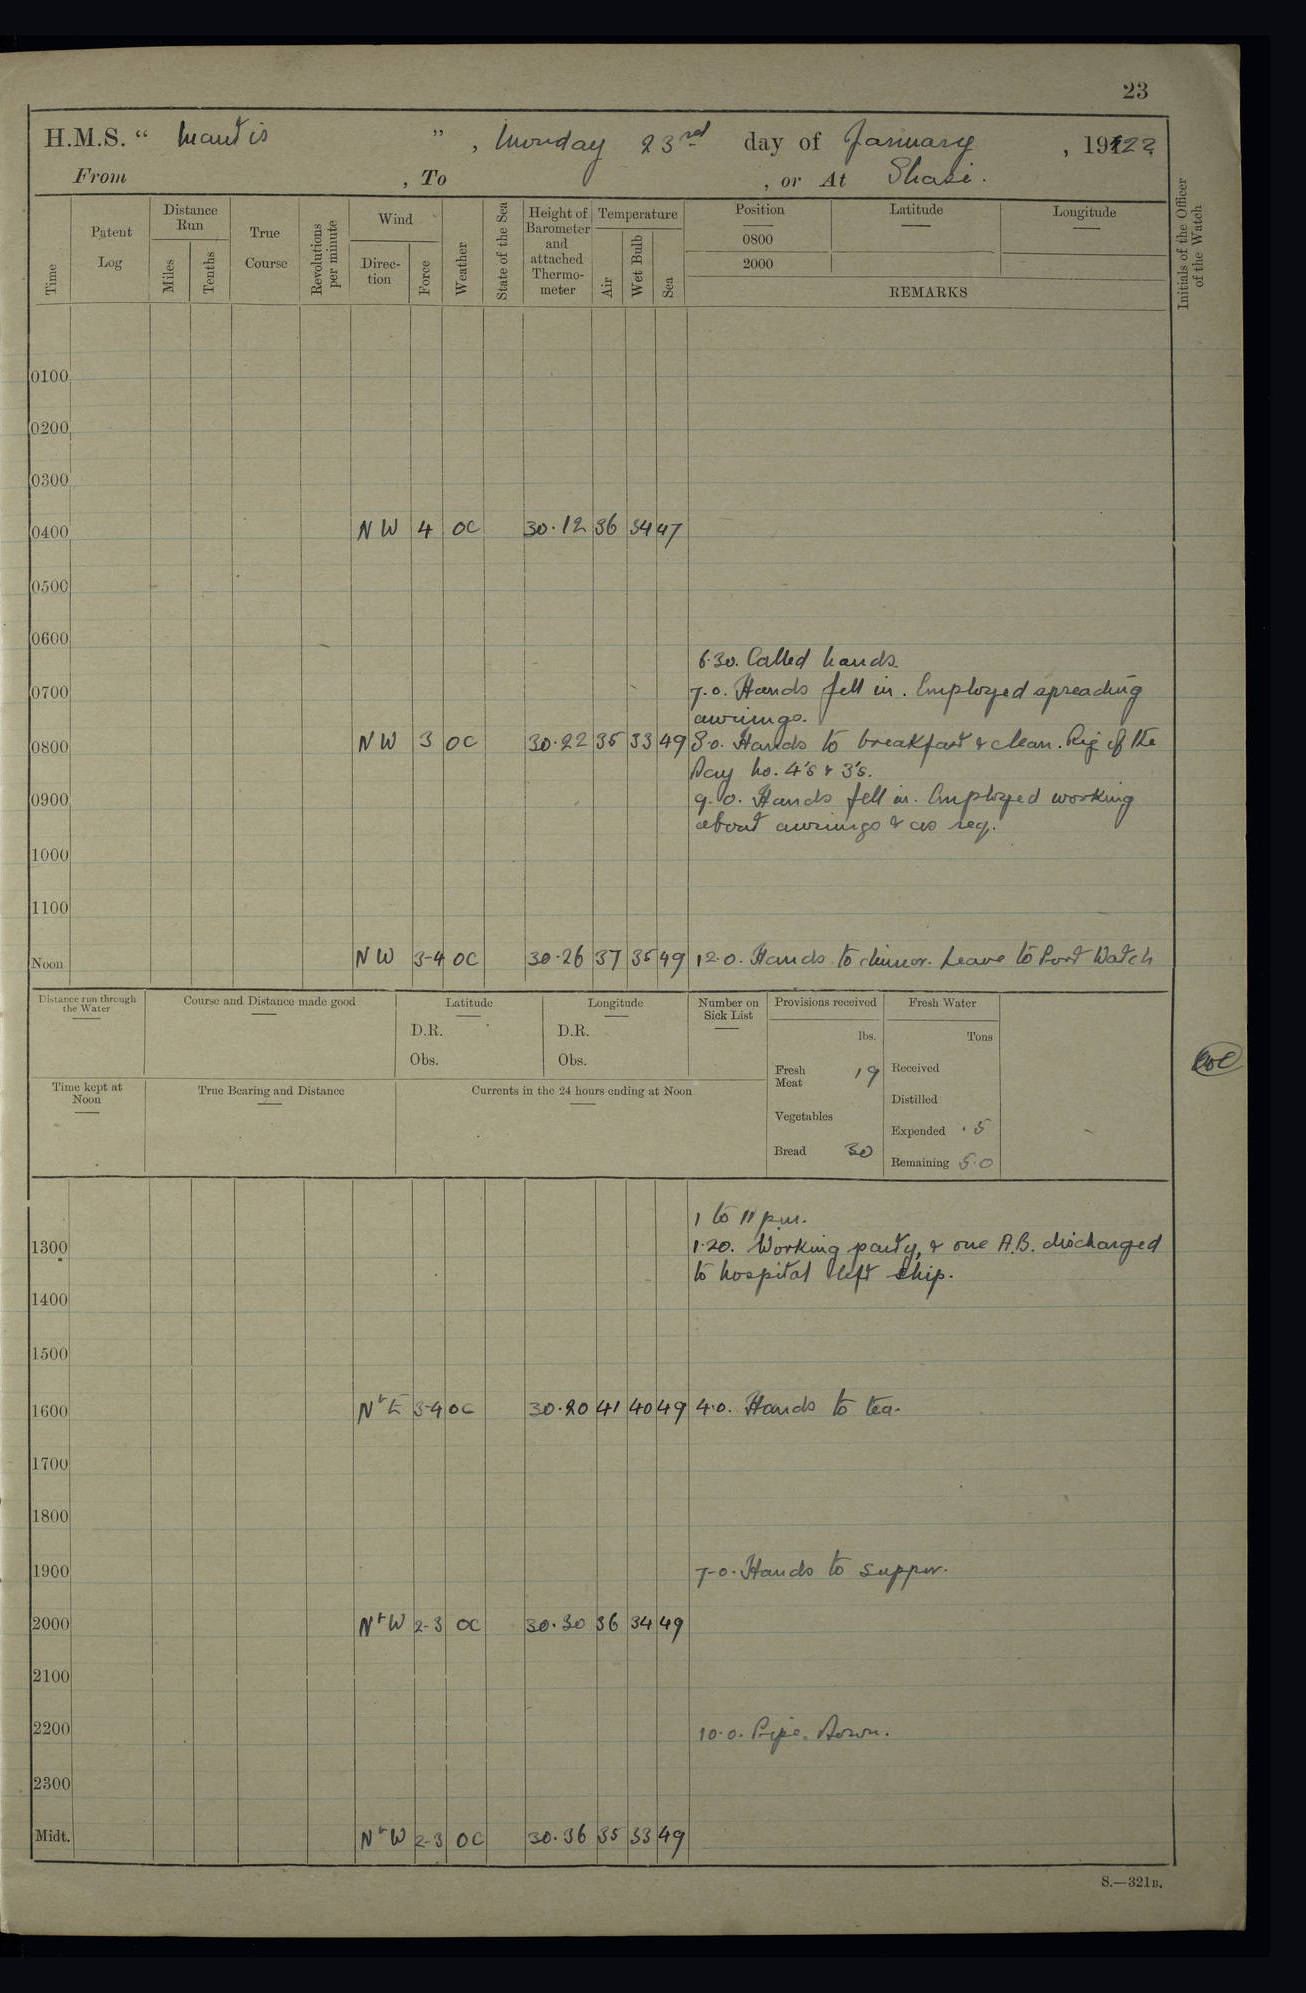 23
H.M.S. " Mantis ", Monday 23rd day of January, 1922
From , To , or At Shasi.
Time
Patent Log
Distance Run
Miles
Tenths
True Course
Revolutions per minute
Wind
Direc-tion
Force
Weather
State of the Sea
Height of Barometer and attached Thermo-meter
Temperature
Air
Wet Bulb
Sea
Position
0800
2000
Latitude
Longitude
REMARKS
Initials of the Officer of the Watch
0100
0200
0300
0400 NW 4 OC 30.12 36 34 47
0500
0600
6.30. Called hands.
0700 7.0. Hands fell in. Employed spreading
awnings.
0800 NW 3 OC 30.22 35 33 49 8.0. Hands to breakfast & clean. Rig of the
Day No. 4's & 3's.
0900 9.0. Hands fell in. Employed working
about awnings & as req.
1000
1100
Noon NW 3-4 OC 30.26 37 35 49 12.0. Hands to dinner. Leave to Port Watch
Distance run through the Water
Course and Distance made good
Latitude
D.R.
Obs.
Longitude
D.R.
Obs.
Number on Sick List
Provisions received
lbs.
Fresh Meat 19
Vegetables
Bread 30
Fresh Water
Tons
Received
Distilled
Expended .5
Remaining 5.0
Time kept at Noon
True Bearing and Distance
Currents in the 24 hours ending at Noon
1 to 11 pm.
1300 1.20. Working party, & one A.B. discharged
to hospital left ship.
1400
1500
1600 N'E 3-4 OC 30.20 41 40 49 4.0. Hands to tea.
1700
1800
1900 7-0. Hands to supper.
2000 N'W 2-3 OC 30.30 36 34 49
2100
2200 10.0. Pipe Down.
2300
Midt. N'W 2-3 OC 30.36 35 33 49
S.—321B.